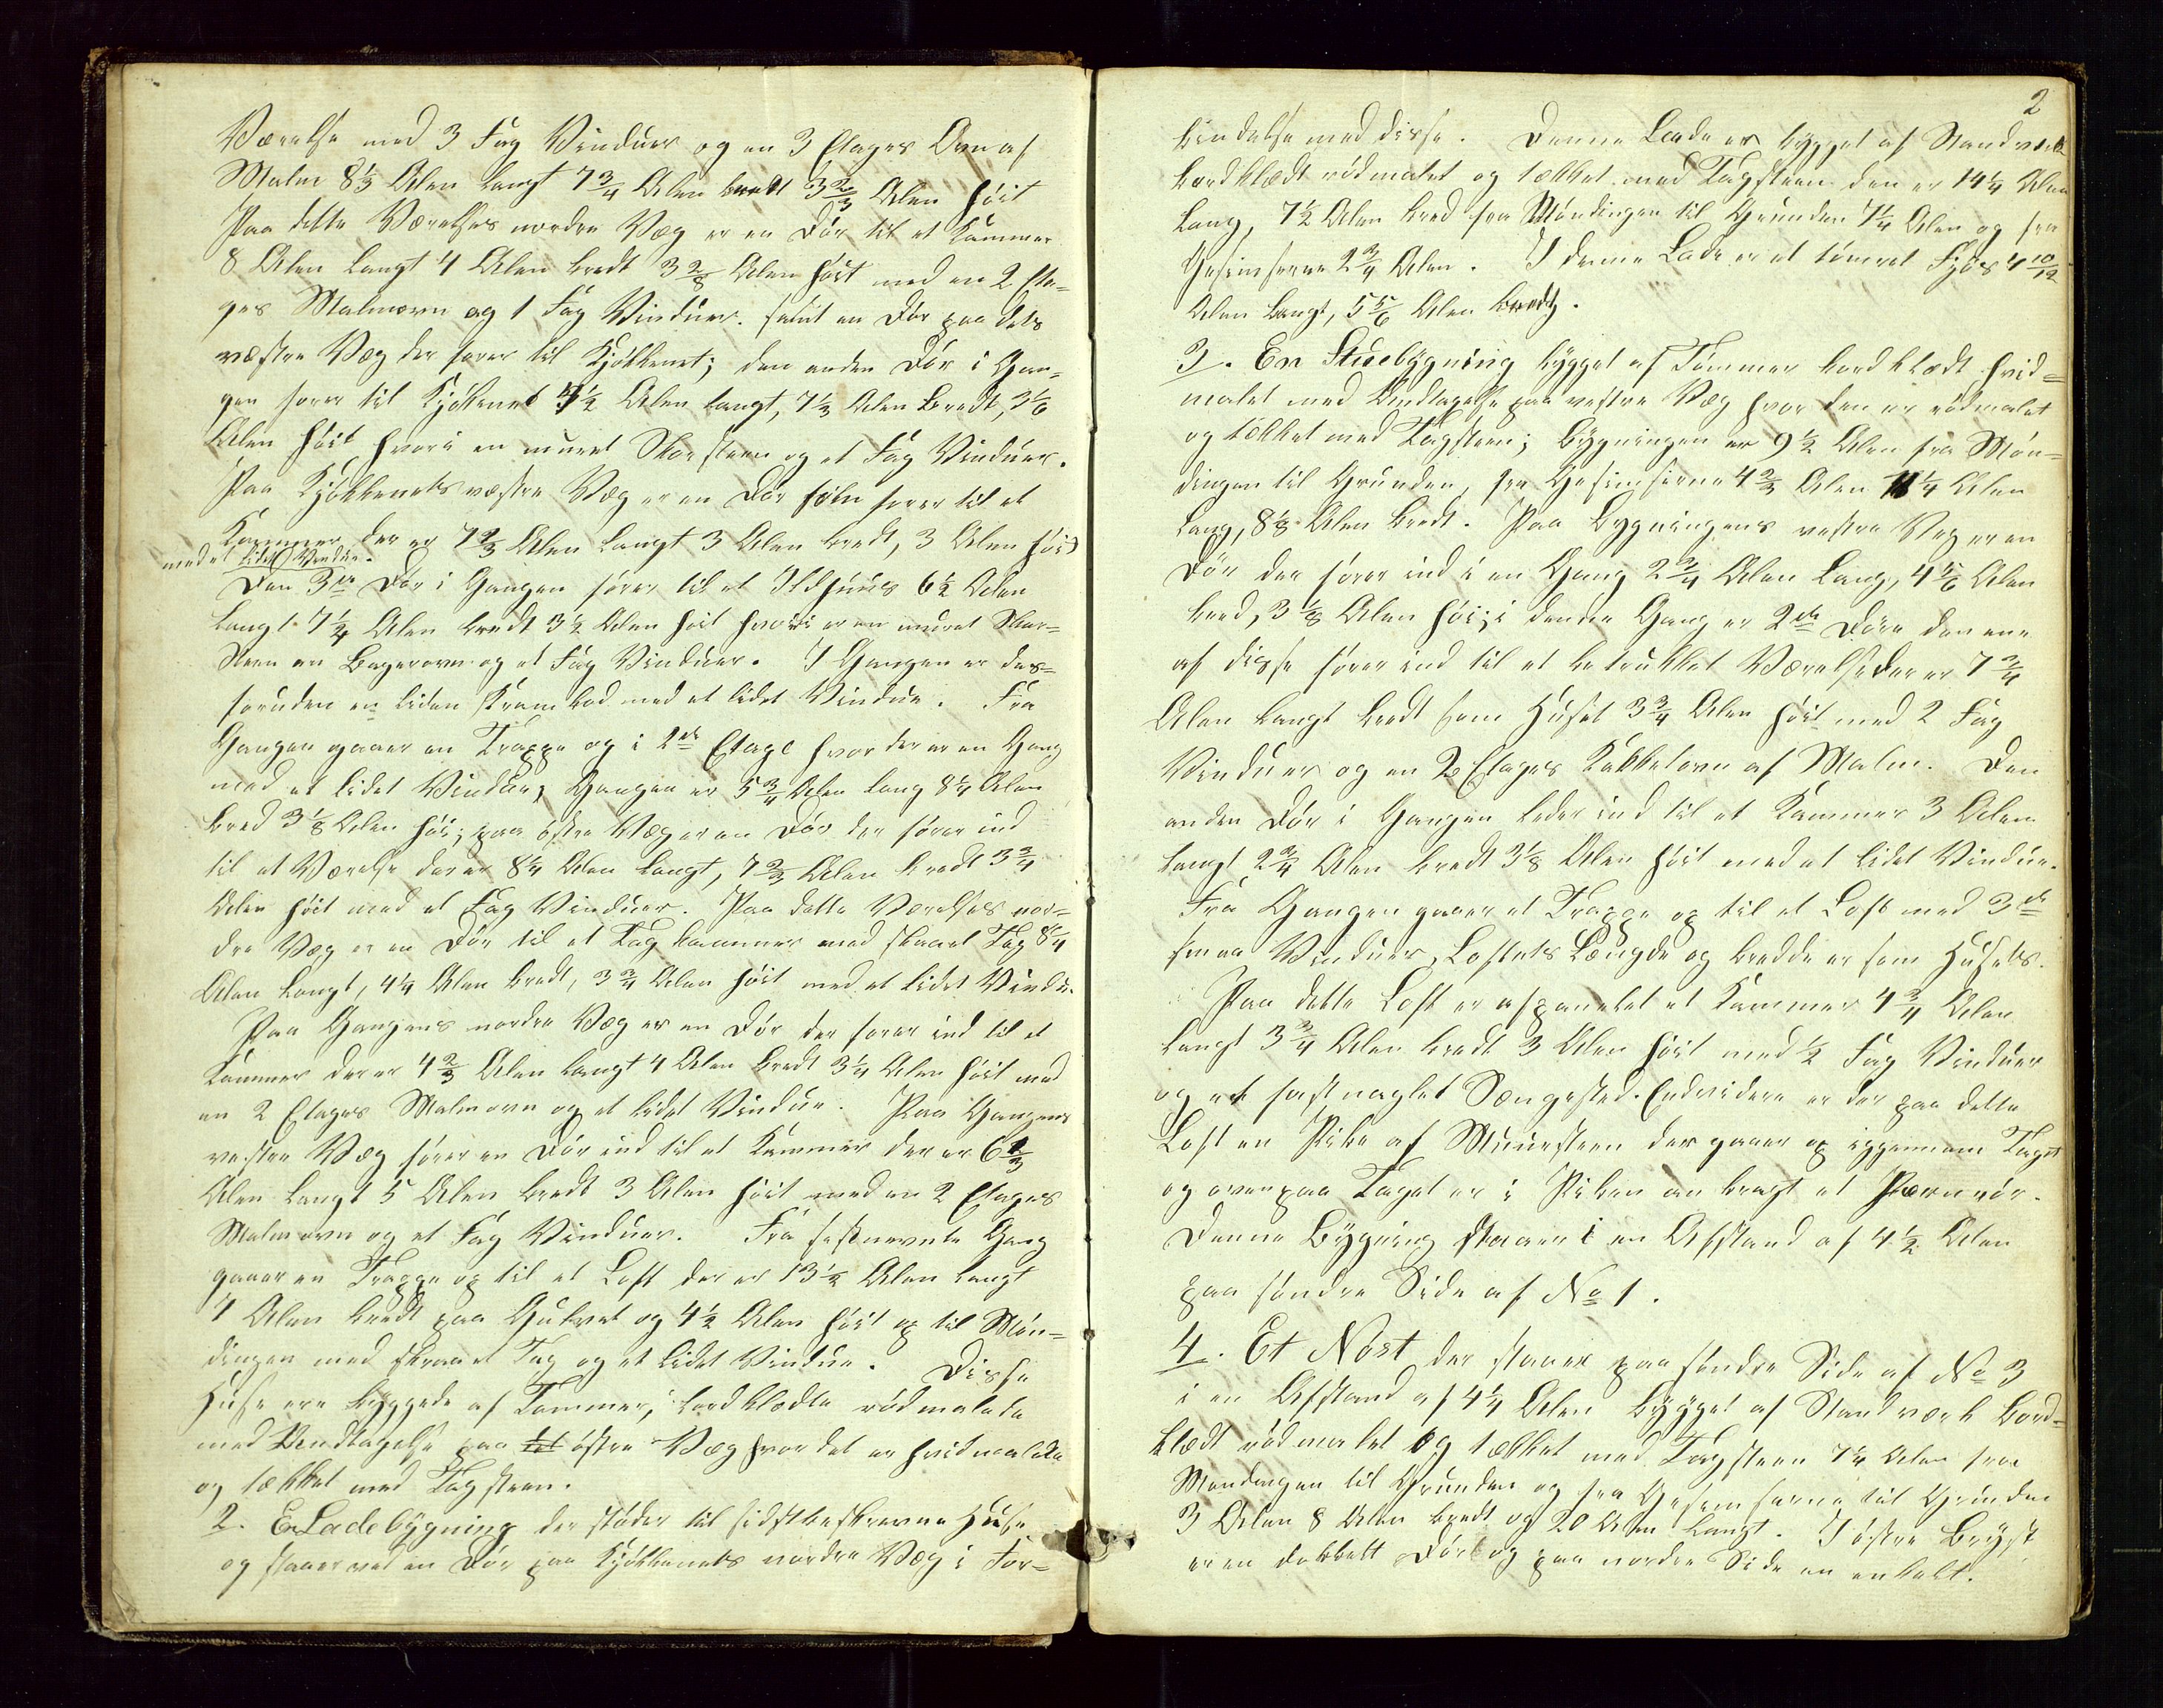 Værelse med 3 Fag Vinduer og en 3 Etages Ovn af
Malm 8 1/3 Alen langt 7 3/4 Alen bredt 3 2/3 Alen høit
Paa dette Værelses nordre Væg er en Dør til et Kammer
8 Alen langt 4 Alen bredt 3 2/8 Alen høit med en 2 Eta-
ges Malmovn og 1 Fag Vinduer. samt en Dør paa dets
væstre Væg der fører til Kjøkkenet; den anden Dør i Gan-
gen fører til Kjøkkenet 4 1/2 Alen langt, 7 1/3 Alen bredt, 3 1/6
Alen høit hvori en muret Skorsteen og et Fag Vinduer.
Paa Kjøkkenets væstre Væg er en Dør som fører til et
Kammer der er 7 2/3 Alen langt 3 Alen bredt, 3 Alen høit
med et lidet Vindue.
Den 3de Dør i Gangen fører til et Ildhuus 6 1/2 Alen
langt 7 1/4 Alen bredt 3 1/2 Alen høit hvori er en muret Skor-
steen en Bagerovn og et Fag Vinduer. I Gangen er des-
foruden en liden Krambod med et lidet Vindue. Fra
Gangen gaaer en Trappe op i 2de Etage hvor der er en Gang
med et lidet Vindue, Gangen er 5 3/4 Alen lang 8 1/4 Alen
bred 3 1/8 Alen høi; paa østre Væg er en Dør der fører ind
til et Værelse der er 8 1/4 Alen langt, 7 2/3 Alen bredt 3 3/4
Alen høit med et Fag Vinduer. Paa dette Værelses nor-
dre Væg er en Dør til et Tagkammer med skraat Tag 8 1/4
Alen langt, 4 1/4 Alen bredt, 3 3/4 Alen høit med et lidet Vindu.
Paa Gangens nordre Væg er en Dør der fører ind til et
Kammer der er 4 2/3 Alen langt 4 Alen bredt 3 1/4 Alen høit med
en 2 Etages Malmovn og et lidet Vindue. Paa Gangens
vestre Væg fører en Dør ind til et Kammer der er 6 1/3
Alen langt 5 Alen bredt 3 Alen høit med en 2 Etages
Malmovn og et Fag Vinduer. Fra sistnevnte Gang
gaaer en Trappe op til et Loft der er 13 1/2 Alen langt
7 Alen bredt paa Gulvet og 4 1/2 Alen høit op til Møn-
dingen med skraaet Tag og et lidet Vindue. Disse
Huse ere byggede af Tømmer, bordklædte rødmalede
med Undtagelse paa østre Væg hvor det er hvidmalede
og tækket med Tagsteen.
2. En Ladebygning der støder til sidstbeskrevne Huse
og staaer ved en Dør paa Kjøkkenets nordre Væg i For-
2
bindelse med disse. Denne Lade er bygget af Standværk
bordklædt rødmalet og tækket med Tagsteen den er 14 1/4 Alen
lang, 7 1/2 Alen bred fra Møndingen til Grunden 7 1/4 Alen og fra
Gesimserne 2 3/4 Alen. I denne Lade er et tømret Fjøs 4 10/12
Alen langt, 5 5/6 Alen bredt.
3. En Stuebygning bygget af Tømmer bordklædt hvid-
malet med Undtagelse paa vestre Væg hvor den er rødmalet
og tækket med Tagsteen; Bygningen er 9 1/2 Alen fra Møn-
dingen til Grunden, fra Gesimserne 4 2/3 Alen 11 1/4 Alen
lang, 8 1/8 Alen bredt. Paa Bygningens vestre Væg er en
Dør der fører ind i en Gang 2 3/4 Alen lang, 4 5/6 Alen
bred, 3 1/8 Alen høi; i denne Gang er 2de Døre den ene
af disse fører ind til et betrukket Værelse der er 7 3/4
Alen langt bredt som Huset 3 3/4 Alen høit med 2 Fag
Vinduer og en 2 Etages Kakkelovn af Malm. Den
anden Dør i Gangen leder ind til et Kammer 3 Alen
langt 2 3/4 Alen bredt 3 1/8 Alen høit med et lidet Vindue.
Fra Gangen gaaer et Trappe op til et Loft med 3de
smaa Vinduer, Loftets Længde og bredde er som Husets.
Paa dette Loft er afpanelet et Kammer 4 3/4 Alen
langt 3 3/4 Alen bredt 3 Alen høit med 1/2 Fag Vinduer
og et fastnaglet Sængested. Endvidere er der paa dette
Loft en Pibe af Muursteen der gaaer op igjennem Taget
og ovenpaa Taget er i Piben anbragt et Jærnrør.
Denne Bygning staaer i en Afstand af 4 1/2 Alen
paa søndre Side af No 1.
4. Et Nøst der staaer paa søndre Side af No 3
i en Afstand af 4 1/4 Alen bygget af Standværk bord-
klædt rødmalet og tækket med Tagsteen 7 1/4 Alen fra
Møndingen til Grunden og fra Gesimserne til Grunden
3 Alen 8 Alen bredt og 20 Alen langt. I østre Bryst
er en dobbelt Dør og paa nordre Side en enkelt.